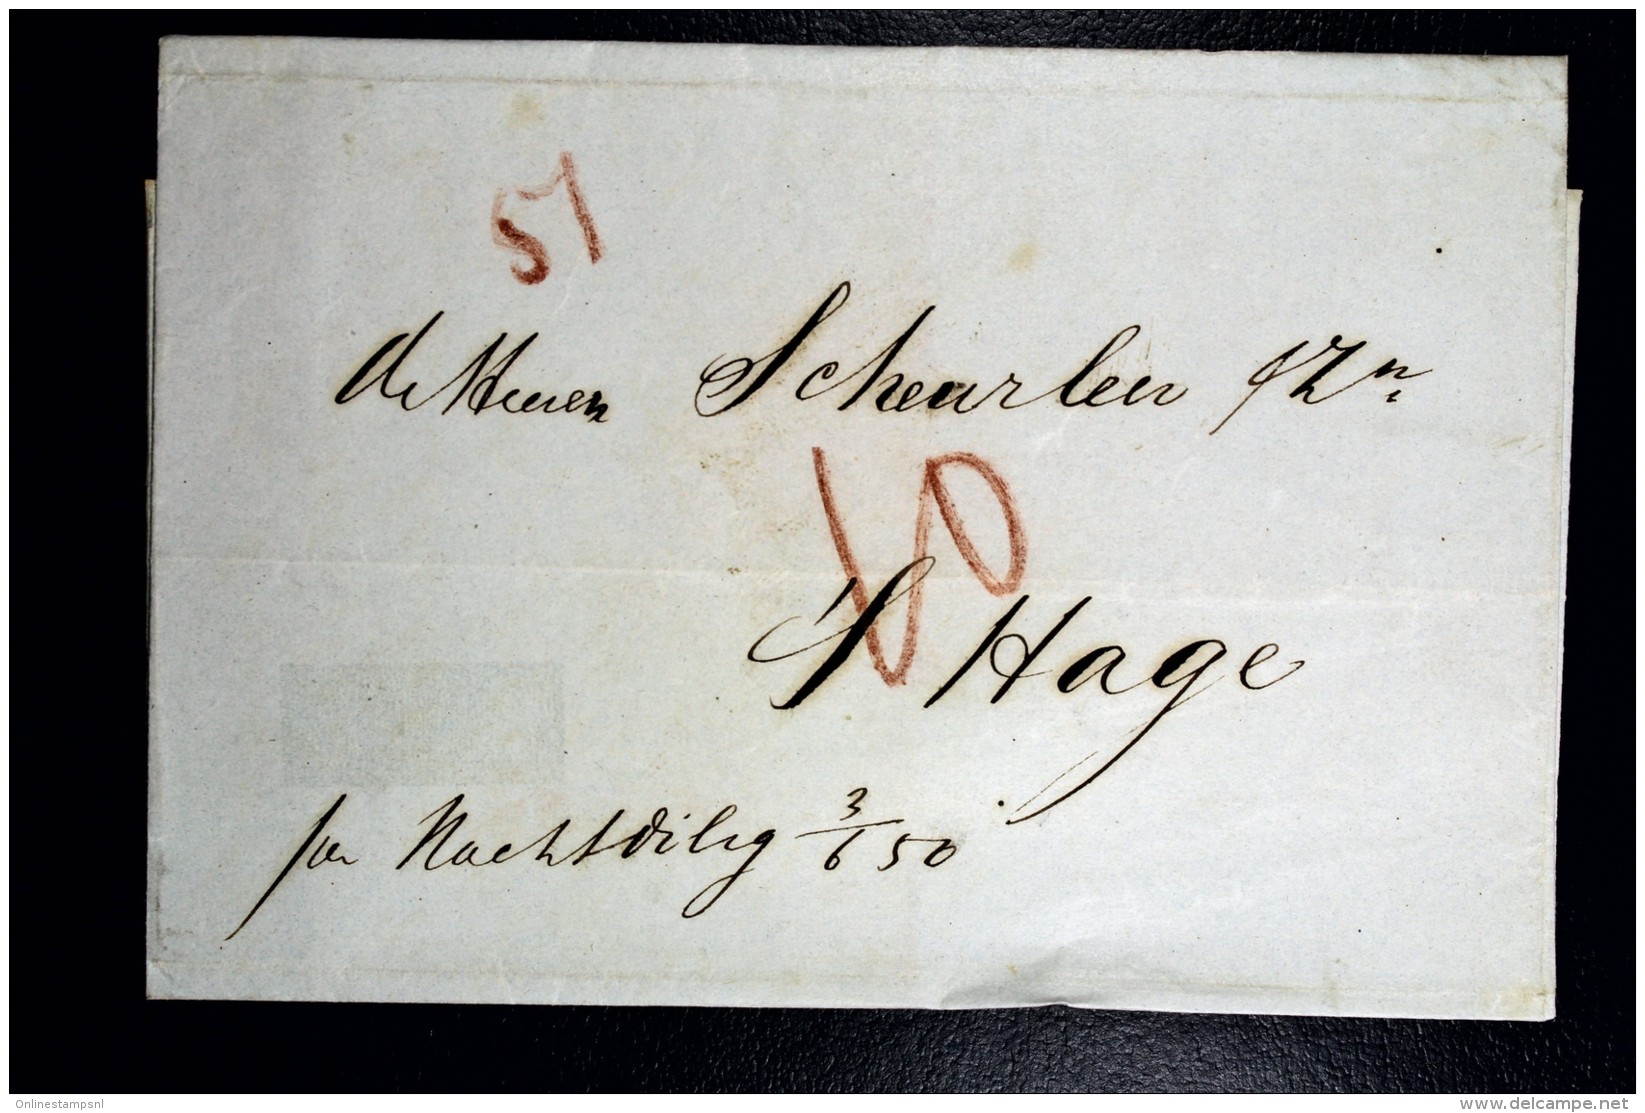 51
de Heeren Scheurleer & Zn
10
'S Hage
per Nachtdilig 3/6 50
Onlinestampsnl
delcampe.net